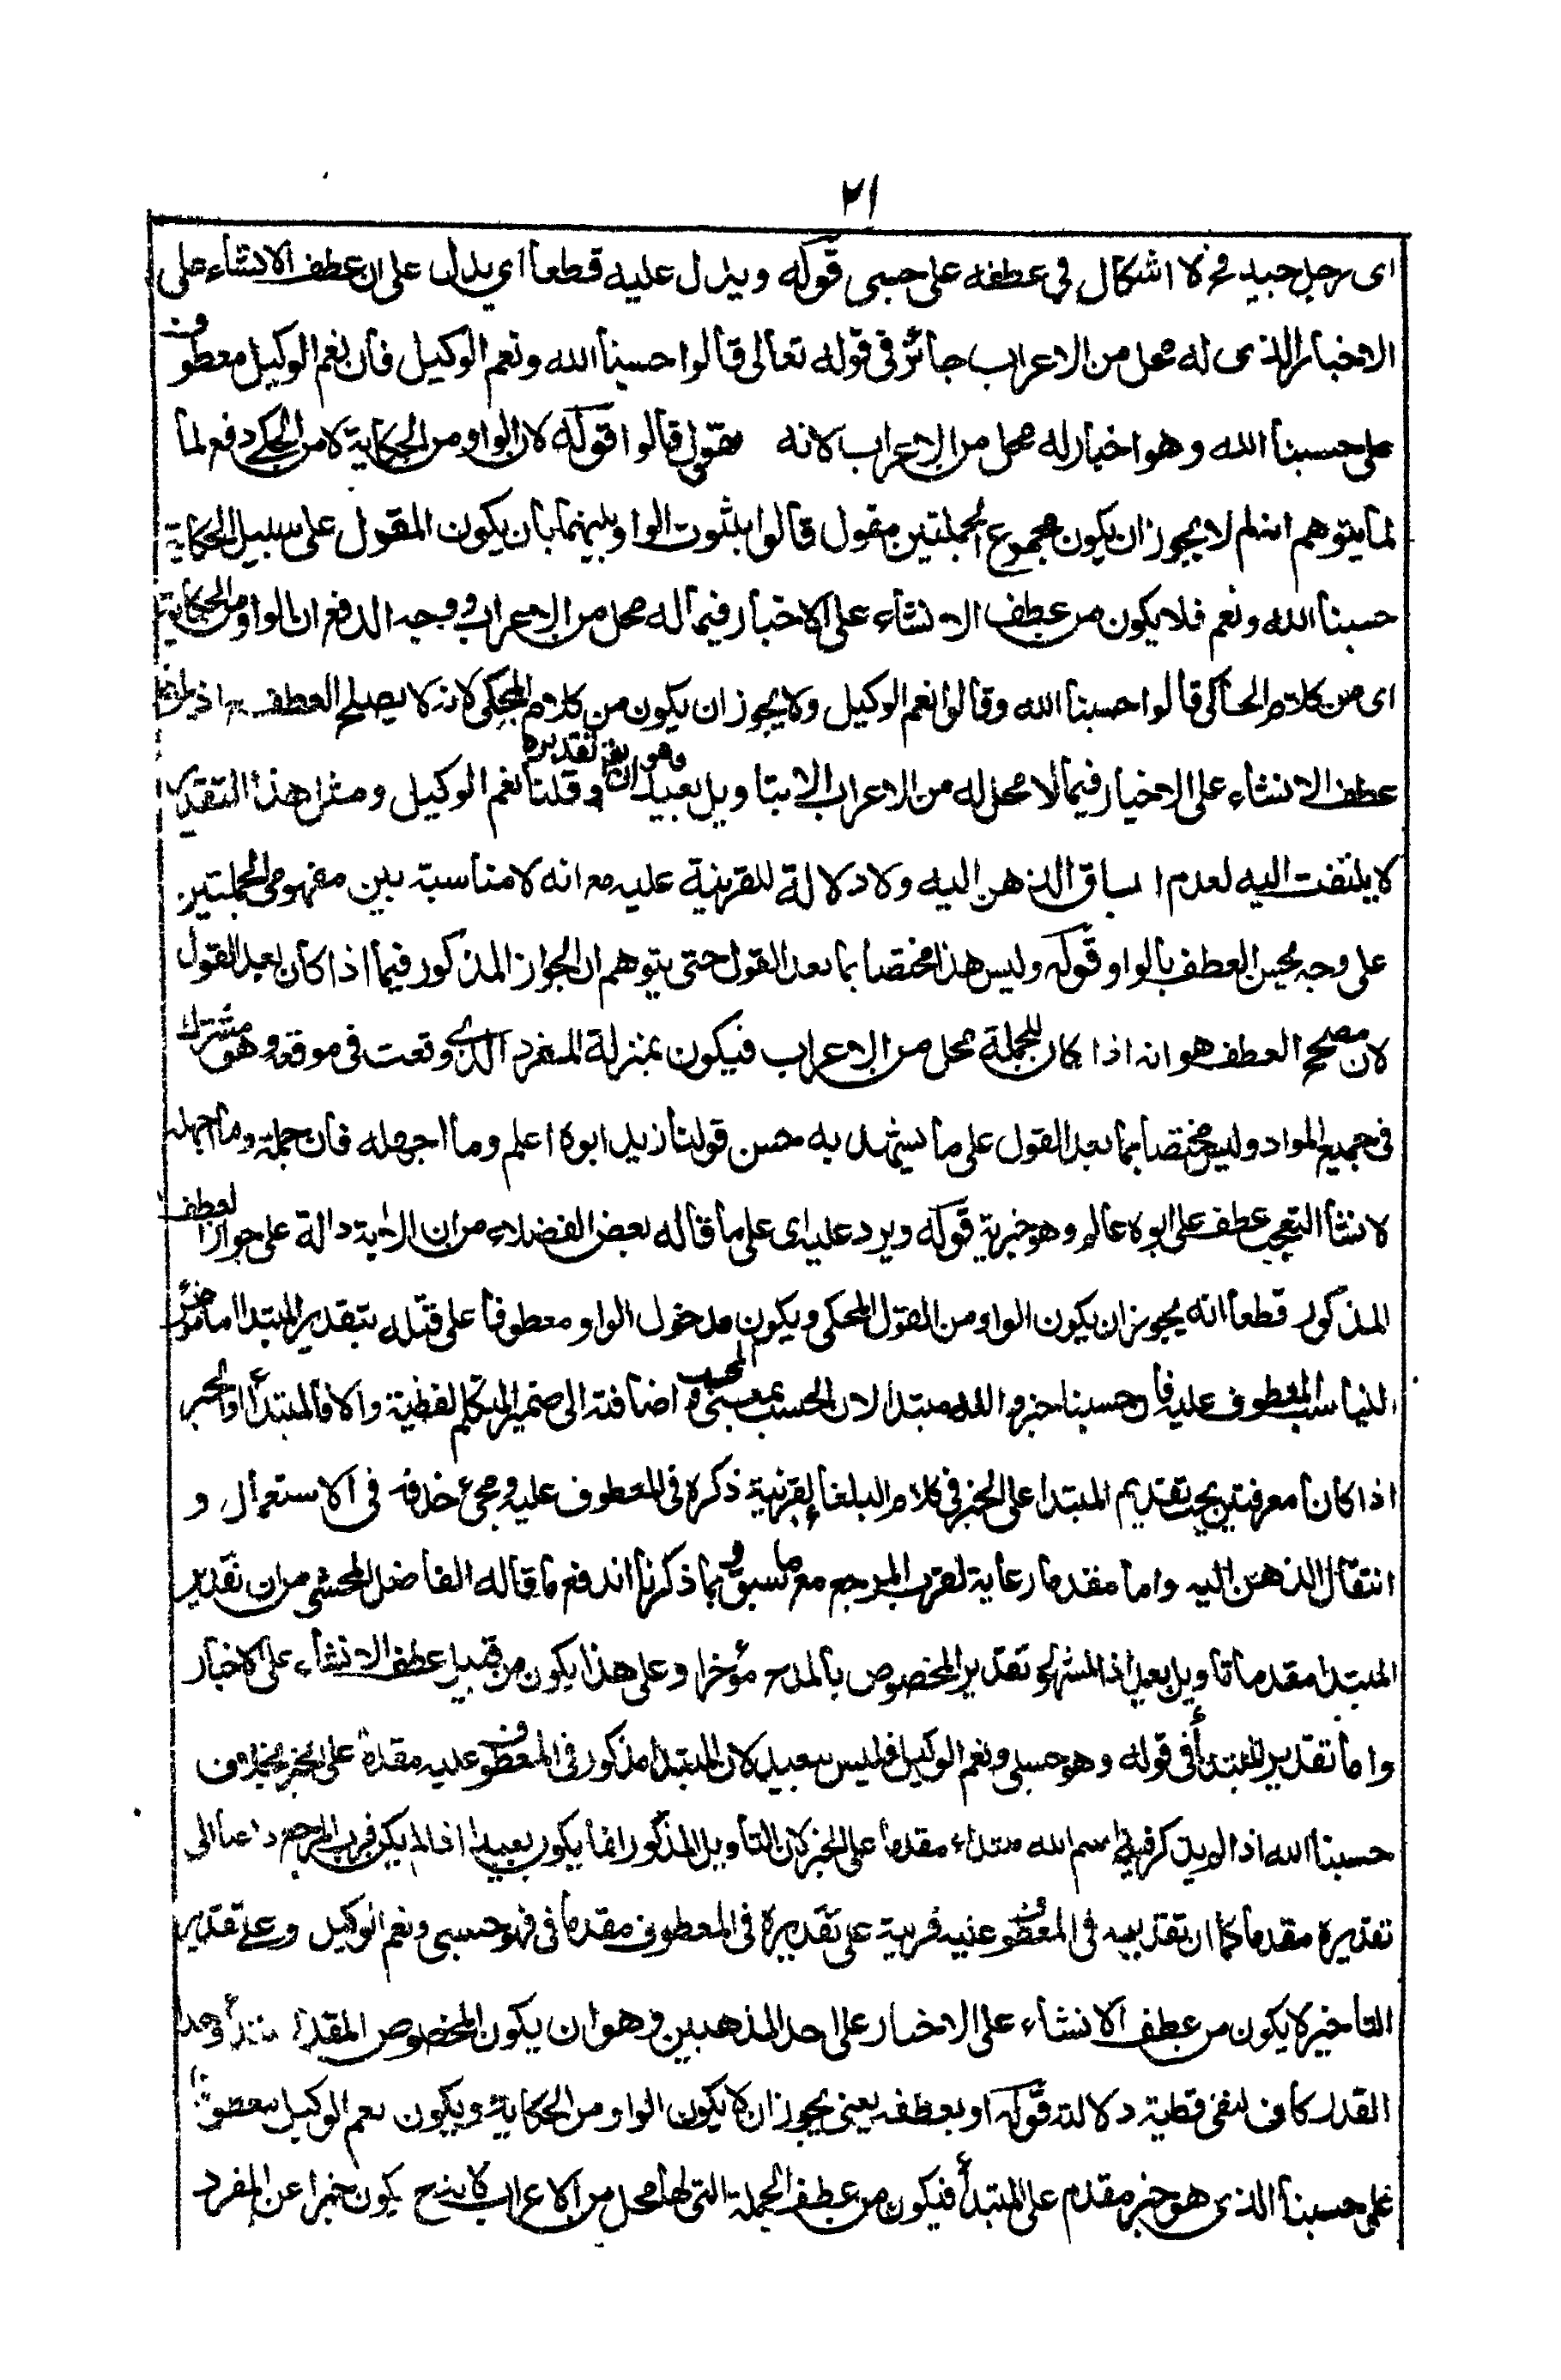 ٢١
اى رجل جيد فح لا اشكال فى عطفه على حسبى قوله ويدل عليه قطعا اي يدل على ان عطف الانشاء على
الاخبار الذى له محل من الاعراب جائز فى قوله تعالى قالوا حسبنا الله ونعم الوكيل فان نعم الوكيل معطوف
على حسبنا الله وهو اخبار له محل من الاعراب لانه مقول قالوا قوله لان الواو من الحكاية لا من المحكى دفع لما
لما يتوهم انه لم لا يجوز ان يكون مجموع الجملتين مقول قالوا بثبوت الواو بينهما بان يكون المقول على سبيل الحكاية
حسبنا الله ونعم فلا يكون من عطف الانشاء على الاخبار فيما له محل من الاعراب ووجه الدفع ان الواو من الحكاية
اى من كلام الحاكى قالوا حسبنا الله وقالوا نعم الوكيل ولا يجوز ان يكون من كلام المحكى لانه لا يصلح العطف اذ
عطف الانشاء على الاخبار فيما لا محل له من الاعراب الا بتاويل بعيد وهو ان تقديره وقلنا نعم الوكيل ومثل هذا التقدير
لا يلتفت اليه لعدم انسباق الذهن اليه ولا دلالة للقرينة عليه مع انه لا مناسبة بين مفهومى الجملتين
على وجه يحسن العطف بالواو قوله وليس هذا مختصا بما بعد القول حتى يتوهم ان الجواز المذكور فيما اذا كان بعد القول
لان مصحح العطف هو انه اذا كان للجملة محل من الاعراب فيكون بمنزلة المفرد الذي وقعت فى موقعه وهو مشترك
فى جميع المواد وليس مختصا بما بعد القول على ما يشهد به حسن قولنا زيد ابوه اعلم وما اجهله فان جملة وما اجهله
لانشا التعجب عطف على ابوه عالم وهو خبرية قوله ويرد عليه اى على ما قاله بعض الفضلاء من ان الاية دالة على جواز العطف
المذكور قطعا انه يجوز ان يكون الواو من المقول المحكى ويكون مدخول الواو معطوفا على قبله بتقدير المبتدا اما مؤخر
ليناسب المعطوف عليه فان حسبنا خبر والله مبتدا لان الحسب بمعنى المحسب اضافته الى ضمير المتكلم لفظية والا فالمبتدأ والخبر
اذا كانا معرفتين يجب تقديم المبتدا على الخبر فى كلام البلغاء بقرينة ذكره فى المعطوف عليه ومجئ حذفه فى الاستعمال و
انتقال الذهن اليه واما مقدما رعاية لقرب المرجع مع ما سبق وبما ذكرنا اندفع ما قاله الفاضل المحشى من ان تقدير
المبتدا مقدما تاويل بعيد اذ المشهور تقدير المخصوص بالمدح مؤخرا وعلى هذا يكون من قبيل عطف الانشاء على الاخبار
واما تقدير المبتدأ فى قوله وهو حسبى ونعم الوكيل فليس ببعيد لان المبتدأ مذكور فى المعطوف عليه مقدما على الخبر بخلاف
حسبنا الله اذ لم يذكر فيه اسم الله مبتداء مقدما على الخبر لان التأويل المذكور انما يكون بعيدا اذا لم يكن قرب المرجع داعيا الى
تقديره مقدما كما ان تقديمه فى المعطوف عليه قرينة على تقديره فى المعطوف مقدما فى فهو حسبى ونعم الوكيل وعلى تقدير
التأخير لا يكون من عطف الانشاء على الاخبار على احد المذهبين وهو ان يكون المخصوص المقدم مبتدأ وهذا
القدر كاف لنفى قطعية دلالته قوله او بعطفه يعنى يجوز ان لا يكون الواو من الحكاية ويكون نعم الوكيل معطوفا
على حسبنا الذى هو خبر مقدم على المبتدأ فيكون من عطف الجملة التى لها محل من الاعراب يكون خبرا عن المفرد